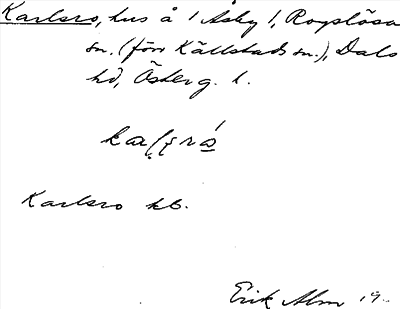 Karlsro, hus å 1 Åsby 1, Rogslösa
sn. (förr Källstads sn.), Dals
hd, Österg. l.
Karlsro kb.
Erik Alm 19